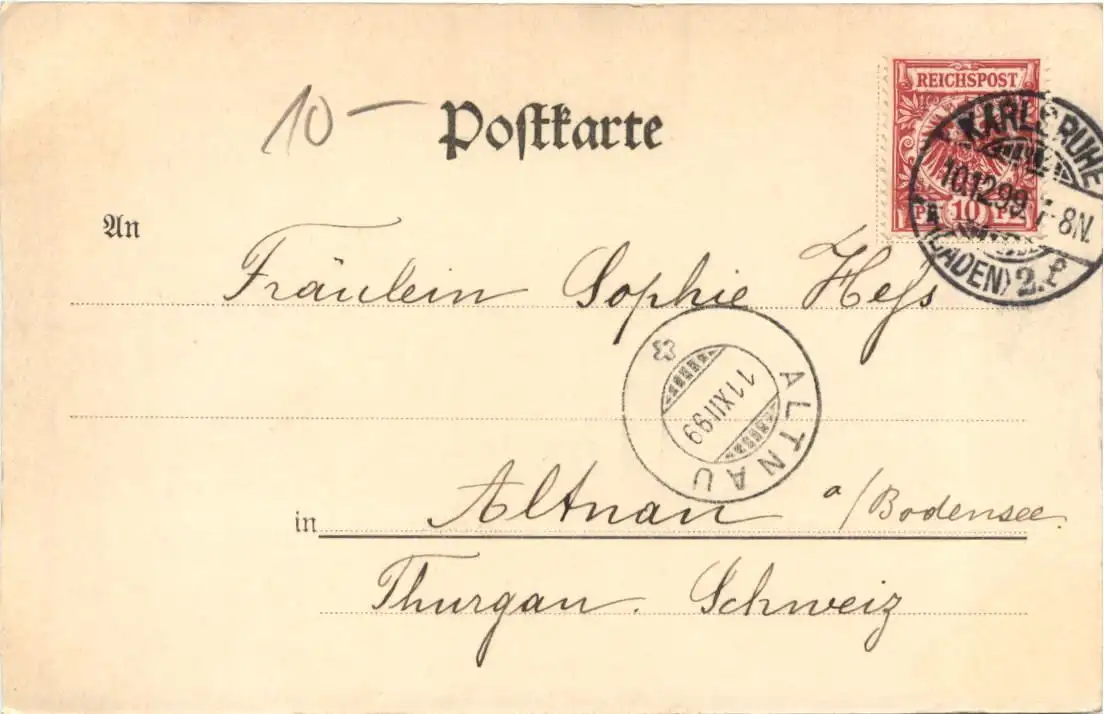 10 —
Postkarte
REICHSPOST
PF 10 PF
KARLSRUHE
10.12.99 7-8N.
(BADEN) 2.P
An
Fräulein Sophie Hess
ALTNAU
11 XII 99
in Altnau a/Bodensee
Thurgau. Schweiz